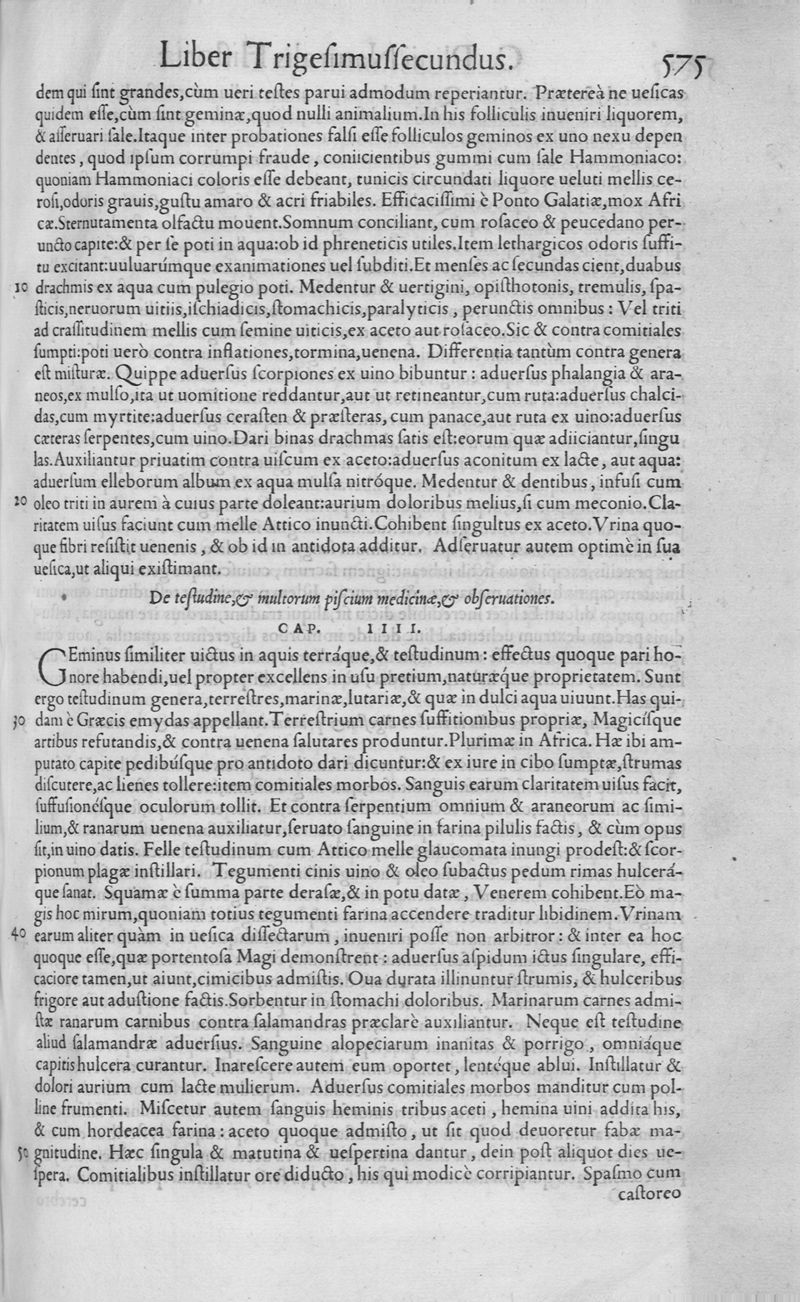 Liber Trigeſimuſſecundus. 575
dem qui ſint grandes,cùm ueri teſtes parui admodum reperiantur. Prætereà ne ueſicas
quidem eſſe,cùm ſint geminæ,quod nulli animalium.In his folliculis inueniri liquorem,
& aſſeruari ſale.Itaque inter probationes falſi eſſe folliculos geminos ex uno nexu depen
dentes, quod ipſum corrumpi fraude, coniicientibus gummi cum ſale Hammoniaco:
quoniam Hammoniaci coloris eſſe debeant, tunicis circundati liquore ueluti mellis ce-
roſi,odoris grauis,guſtu amaro & acri friabiles. Efficaciſſimi è Ponto Galatiæ,mox Afri
cæ.Sternutamenta olfactu mouent.Somnum conciliant, cum roſaceo & peucedano per-
uncto capite:& per ſe poti in aqua:ob id phreneticis utiles.Item lethargicos odoris ſuffi-
tu excitant:uuluarúmque exanimationes uel ſubditi.Et menſes ac ſecundas cient,duabus
10 drachmis ex aqua cum pulegio poti. Medentur & uertigini, opiſthotonis, tremulis, ſpa-
ſticis,neruorum uitiis,iſchiadicis,ſtomachicis,paralyticis, perunctis omnibus: Vel triti
ad craſſitudinem mellis cum ſemine uiticis,ex aceto aut roſaceo.Sic & contra comitiales
ſumpti:poti uerò contra inflationes,tormina,uenena. Differentia tantùm contra genera
eſt miſturæ. Quippe aduerſus ſcorpiones ex uino bibuntur: aduerſus phalangia & ara-
neos,ex mulſo,ita ut uomitione reddantur,aut ut retineantur,cum ruta:aduerſus chalci-
das,cum myrtite:aduerſus ceraſten & præſteras, cum panace,aut ruta ex uino:aduerſus
cæteras ſerpentes,cum uino.Dari binas drachmas ſatis eſt:eorum quæ adiiciantur,ſingu
las.Auxiliantur priuatim contra uiſcum ex aceto:aduerſus aconitum ex lacte, aut aqua:
aduerſum elleborum album ex aqua mulſa nitróque. Medentur & dentibus, infuſi cum
20 oleo triti in aurem à cuius parte doleant:aurium doloribus melius,ſi cum meconio.Cla-
ritatem uiſus faciunt cum melle Attico inuncti.Cohibent ſingultus ex aceto.Vrina quo-
que fibri reſiſtit uenenis, & ob id in antidota additur. Adſeruatur autem optimè in ſua
ueſica,ut aliqui exiſtimant.
De teſtudine,& multorum piſcium medicinæ,& obſeruationes.
CAP. IIII.
GEminus ſimiliter uictus in aquis terráque,& teſtudinum: effectus quoque pari ho-
nore habendi,uel propter excellens in uſu pretium,naturæque proprietatem. Sunt
ergo teſtudinum genera,terreſtres,marinæ,lutariæ,& quæ in dulci aqua uiuunt.Has qui-
30 dam è Græcis emydas appellant.Terreſtrium carnes ſuffitionibus propriæ, Magicíſque
artibus refutandis,& contra uenena ſalutares produntur.Plurimæ in Africa. Hæ ibi am-
putato capite pedibúſque pro antidoto dari dicuntur:& ex iure in cibo ſumptæ,ſtrumas
diſcutere,ac lienes tollere:item comitiales morbos. Sanguis earum claritatem uiſus facit,
ſuffuſionéſque oculorum tollit. Et contra ſerpentium omnium & araneorum ac ſimi-
lium,& ranarum uenena auxiliatur,ſeruato ſanguine in farina pilulis factis, & cùm opus
ſit,in uino datis. Felle teſtudinum cum Attico melle glaucomata inungi prodeſt:& ſcor-
pionum plagæ inſtillari. Tegumenti cinis uino & oleo ſubactus pedum rimas hulcerá-
que ſanat. Squamæ è ſumma parte deraſæ,& in potu datæ, Venerem cohibent.Eò ma-
gis hoc mirum,quoniam totius tegumenti farina accendere traditur libidinem.Vrinam
40 earum aliter quàm in ueſica diſſectarum, inueniri poſſe non arbitror: & inter ea hoc
quoque eſſe,quæ portentoſa Magi demonſtrent: aduerſus aſpidum ictus ſingulare, effi-
caciore tamen,ut aiunt,cimicibus admiſtis. Oua durata illinuntur ſtrumis, & hulceribus
frigore aut aduſtione factis.Sorbentur in ſtomachi doloribus. Marinarum carnes admi-
ſtæ ranarum carnibus contra ſalamandras præclarè auxiliantur. Neque eſt teſtudine
aliud ſalamandræ aduerſius. Sanguine alopeciarum inanitas & porrigo, omniáque
capitis hulcera curantur. Inareſcere autem eum oportet, lentéque ablui. Inſtillatur &
dolori aurium cum lacte mulierum. Aduerſus comitiales morbos manditur cum pol-
line frumenti. Miſcetur autem ſanguis heminis tribus aceti, hemina uini addita his,
& cum hordeacea farina: aceto quoque admiſto, ut ſit quod deuoretur fabæ ma-
50 gnitudine. Hæc ſingula & matutina & ueſpertina dantur, dein poſt aliquot dies ue-
ſpera. Comitialibus inſtillatur ore diducto, his qui modicè corripiantur. Spaſmo cum
caſtoreo